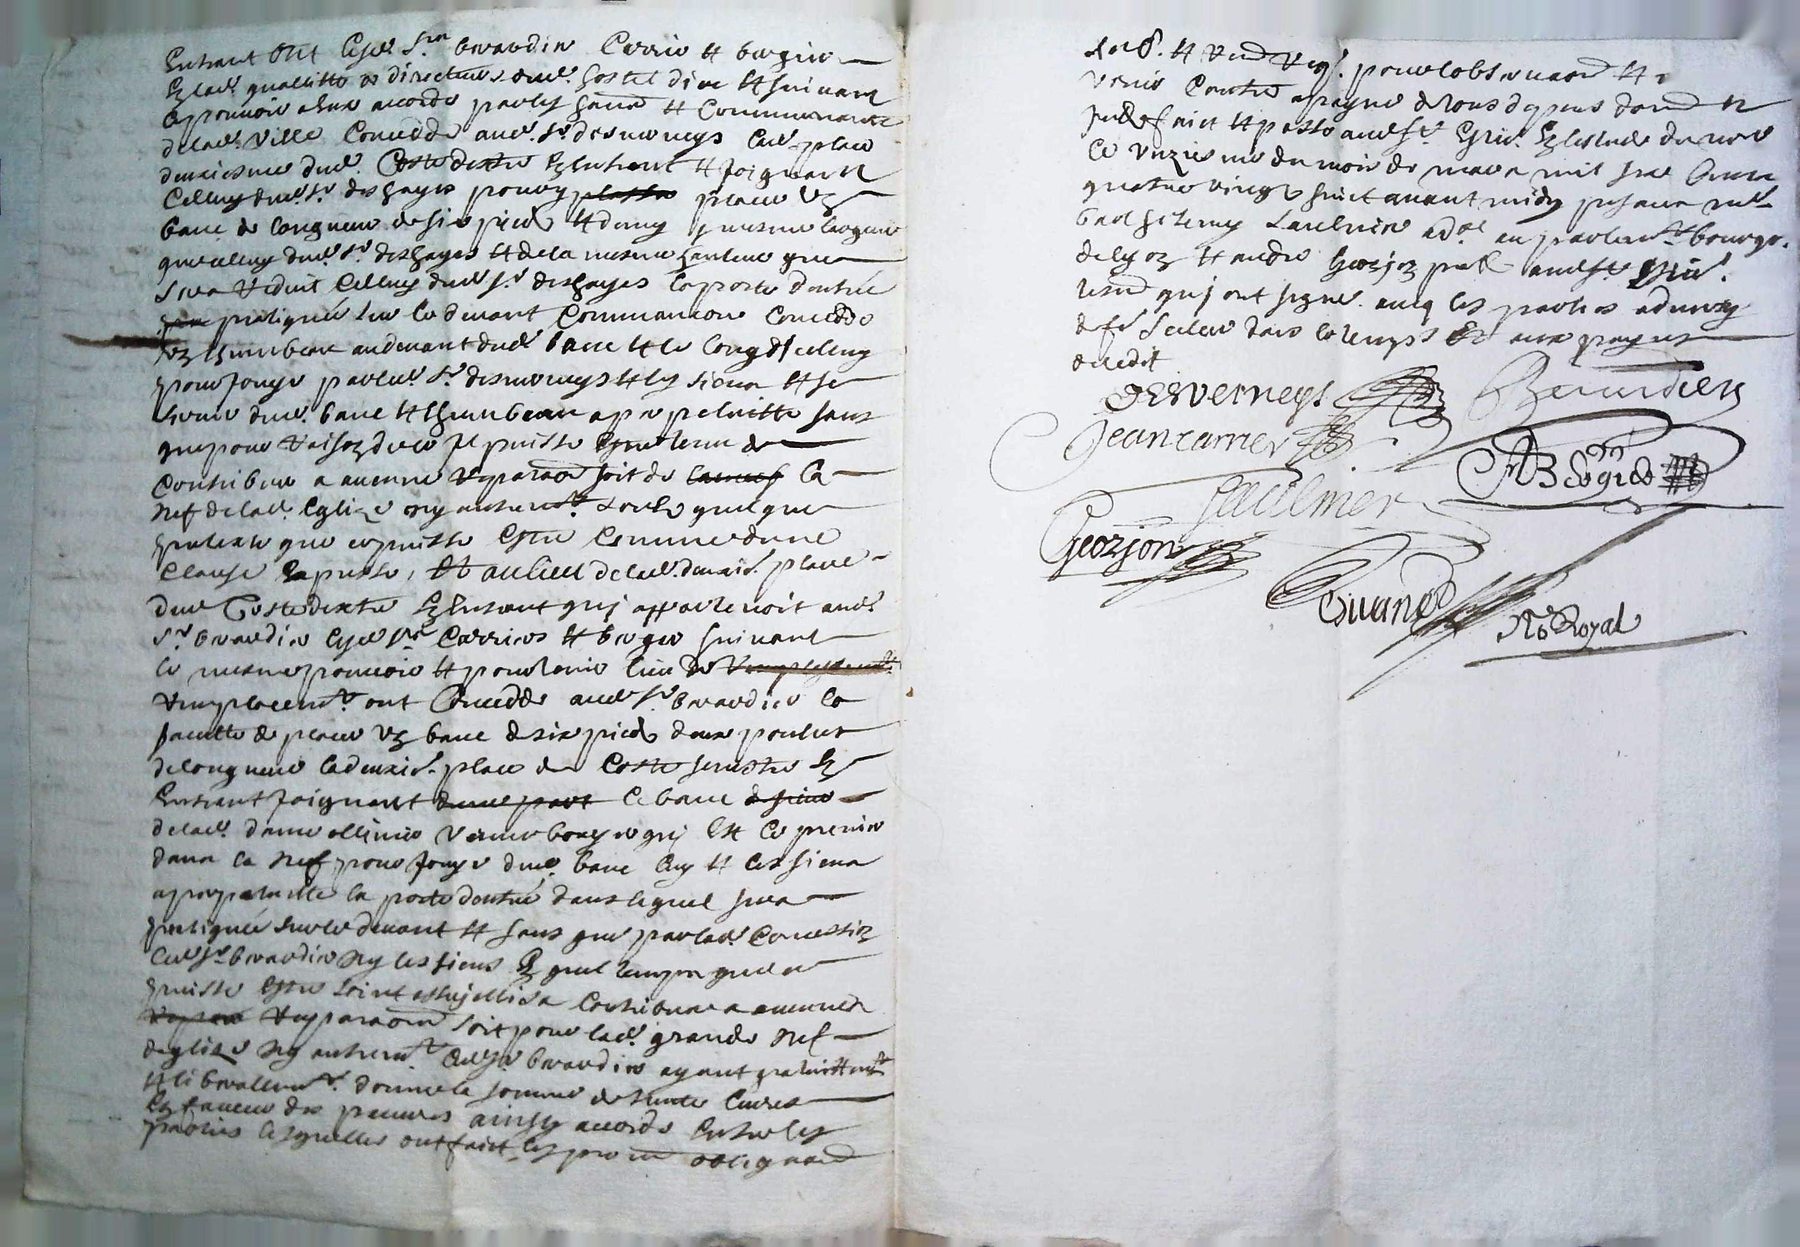 Entrant ont lesd. Srs berardier Carrier et bergier
En lad. quallitté de directeurs dud. hostel dieu et suivant
le pouvoir a eux accordé par les habans et Communauté
de lad. Ville Concedde aud. Sr desverneys lad. place
deuxiesme dud. Costé dextre En Entrant et Joignant
Celluy dud. Sr deshayes pour y placer Un
banc de longueur de six pieds et demy mesme largeur
que celluy dud. Sr deshayes et de la mesme hauteur que
sera reduit Celluy dud. Sr deshayes la porte dentrée
pratiquée sur le devant Comm'aussy Concedde
Un thumbeau au devant dud. banc et le long diceluy
pour Jouyr par led. Sr desverneys et les siens et se
servir dud. banc et thumbeau a perpetuitté sans
que pour raison de ce Il puisse Estre tenu de
Contribuer a aucune reparaon soit de la
nef de lad. Eglize ny autremt. soubs quelque
pretexte que ce puisse Estre Comme dune
Clause Expresse, Et au lieu de lad. deuxie. place
dud. Costé dextre En Entrant qui appartenoit aud.
Sr berardier lesd. Srs Carrier et bergier suivant
le mesme pouvoir et pour tenir lieu de
remplacemt. ont Concedde aud. Sr berardier la
faculté de placer Un banc de six pieds deux poulces
de longueur la deuxie. place du Costé senestre En
Entrant Joignant le banc
de lad. dame ollimier qui Est le premier
dans la Nef pour Jouyr dud. banc luy et les siens
a perpetuitté la porte dentrée dans lequel sera
pratiquée sur le devant et sans que par lad. Concession
led. Sr berardier Ny les siens En quel temps que ce
puisse Estre soient assujettis a Contribuer a aucunes
reparaons soit pour lad. grande Nef
deglize Ny autremt. led. Sr berardier ayant gratuittemt.
et liberallemt. donné la somme de trente livres
En faveur des pauvres ainsy accordé Entre les
parties lesquelles ont faict les prom. obligaons
et Un pour lobservaon et
Venir Contre a payne de tous despens dom. et
faict et passé aud. St Estie. En lestude du nore
le Unziesme du mois de mars mil six Cents
quatre vingt huict avant midy presents me.
barthelemy Laulnier ador. au parlemt. bourgs.
de lyon et andré Georjon prat. aud. St Estie.
resid. qui ont signé avecq les parties advertys
de fe. sceler dans le temps Et aux paynes
de ledit
DESVerneys Berardier
Jean carrier
Bergier
Laulnier
Georjon
No Royal